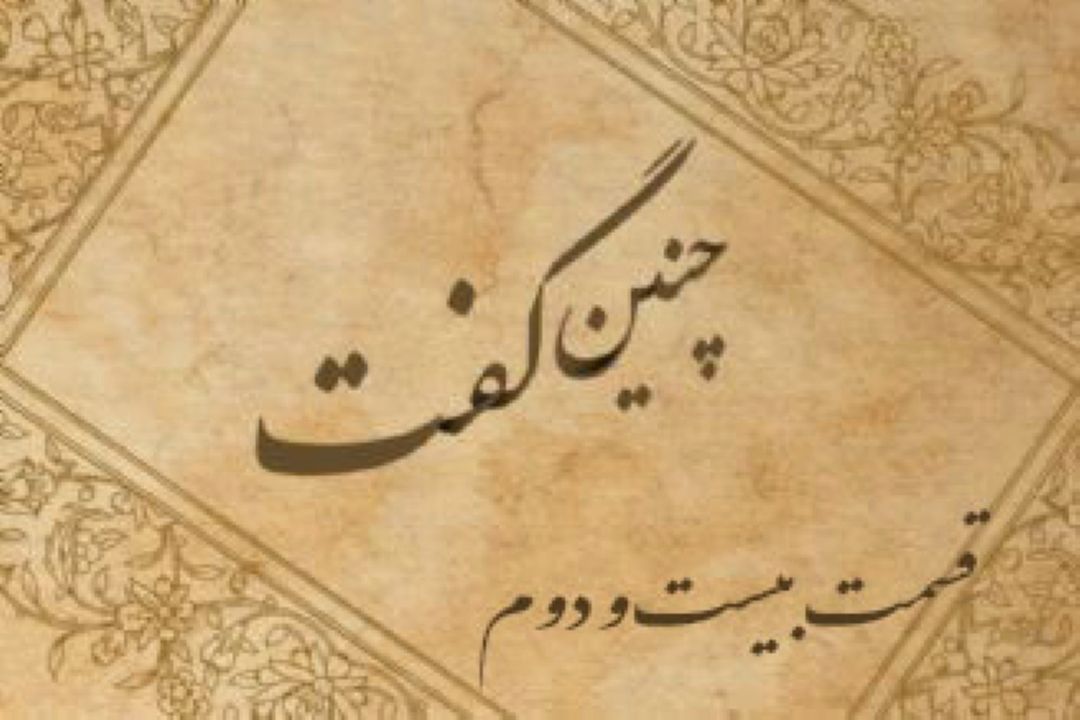 چنین گفت
قسمت بیست و دوم